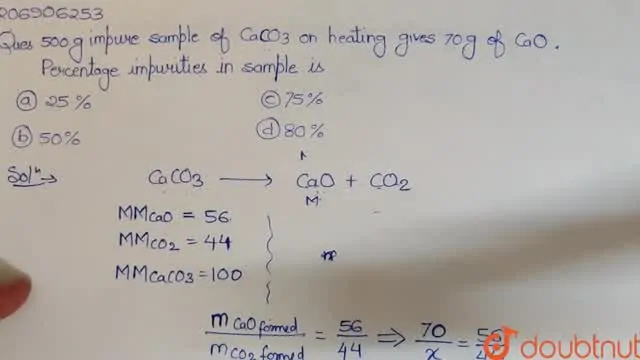 206906253
Ques 500g impure sample of CaCO3 on heating gives 70g of CaO.
Percentage impurities in sample is
(a) 25%
(c) 75%
(b) 50%
(d) 80%
Solⁿ→
CaCO3 → CaO + CO2
M
MMCaO = 56
MMCO2 = 44
MMCaCO3 = 100
mCaO formed / mCO2 formed = 56/44 ⟹ 70/x = 56/4
doubtnut